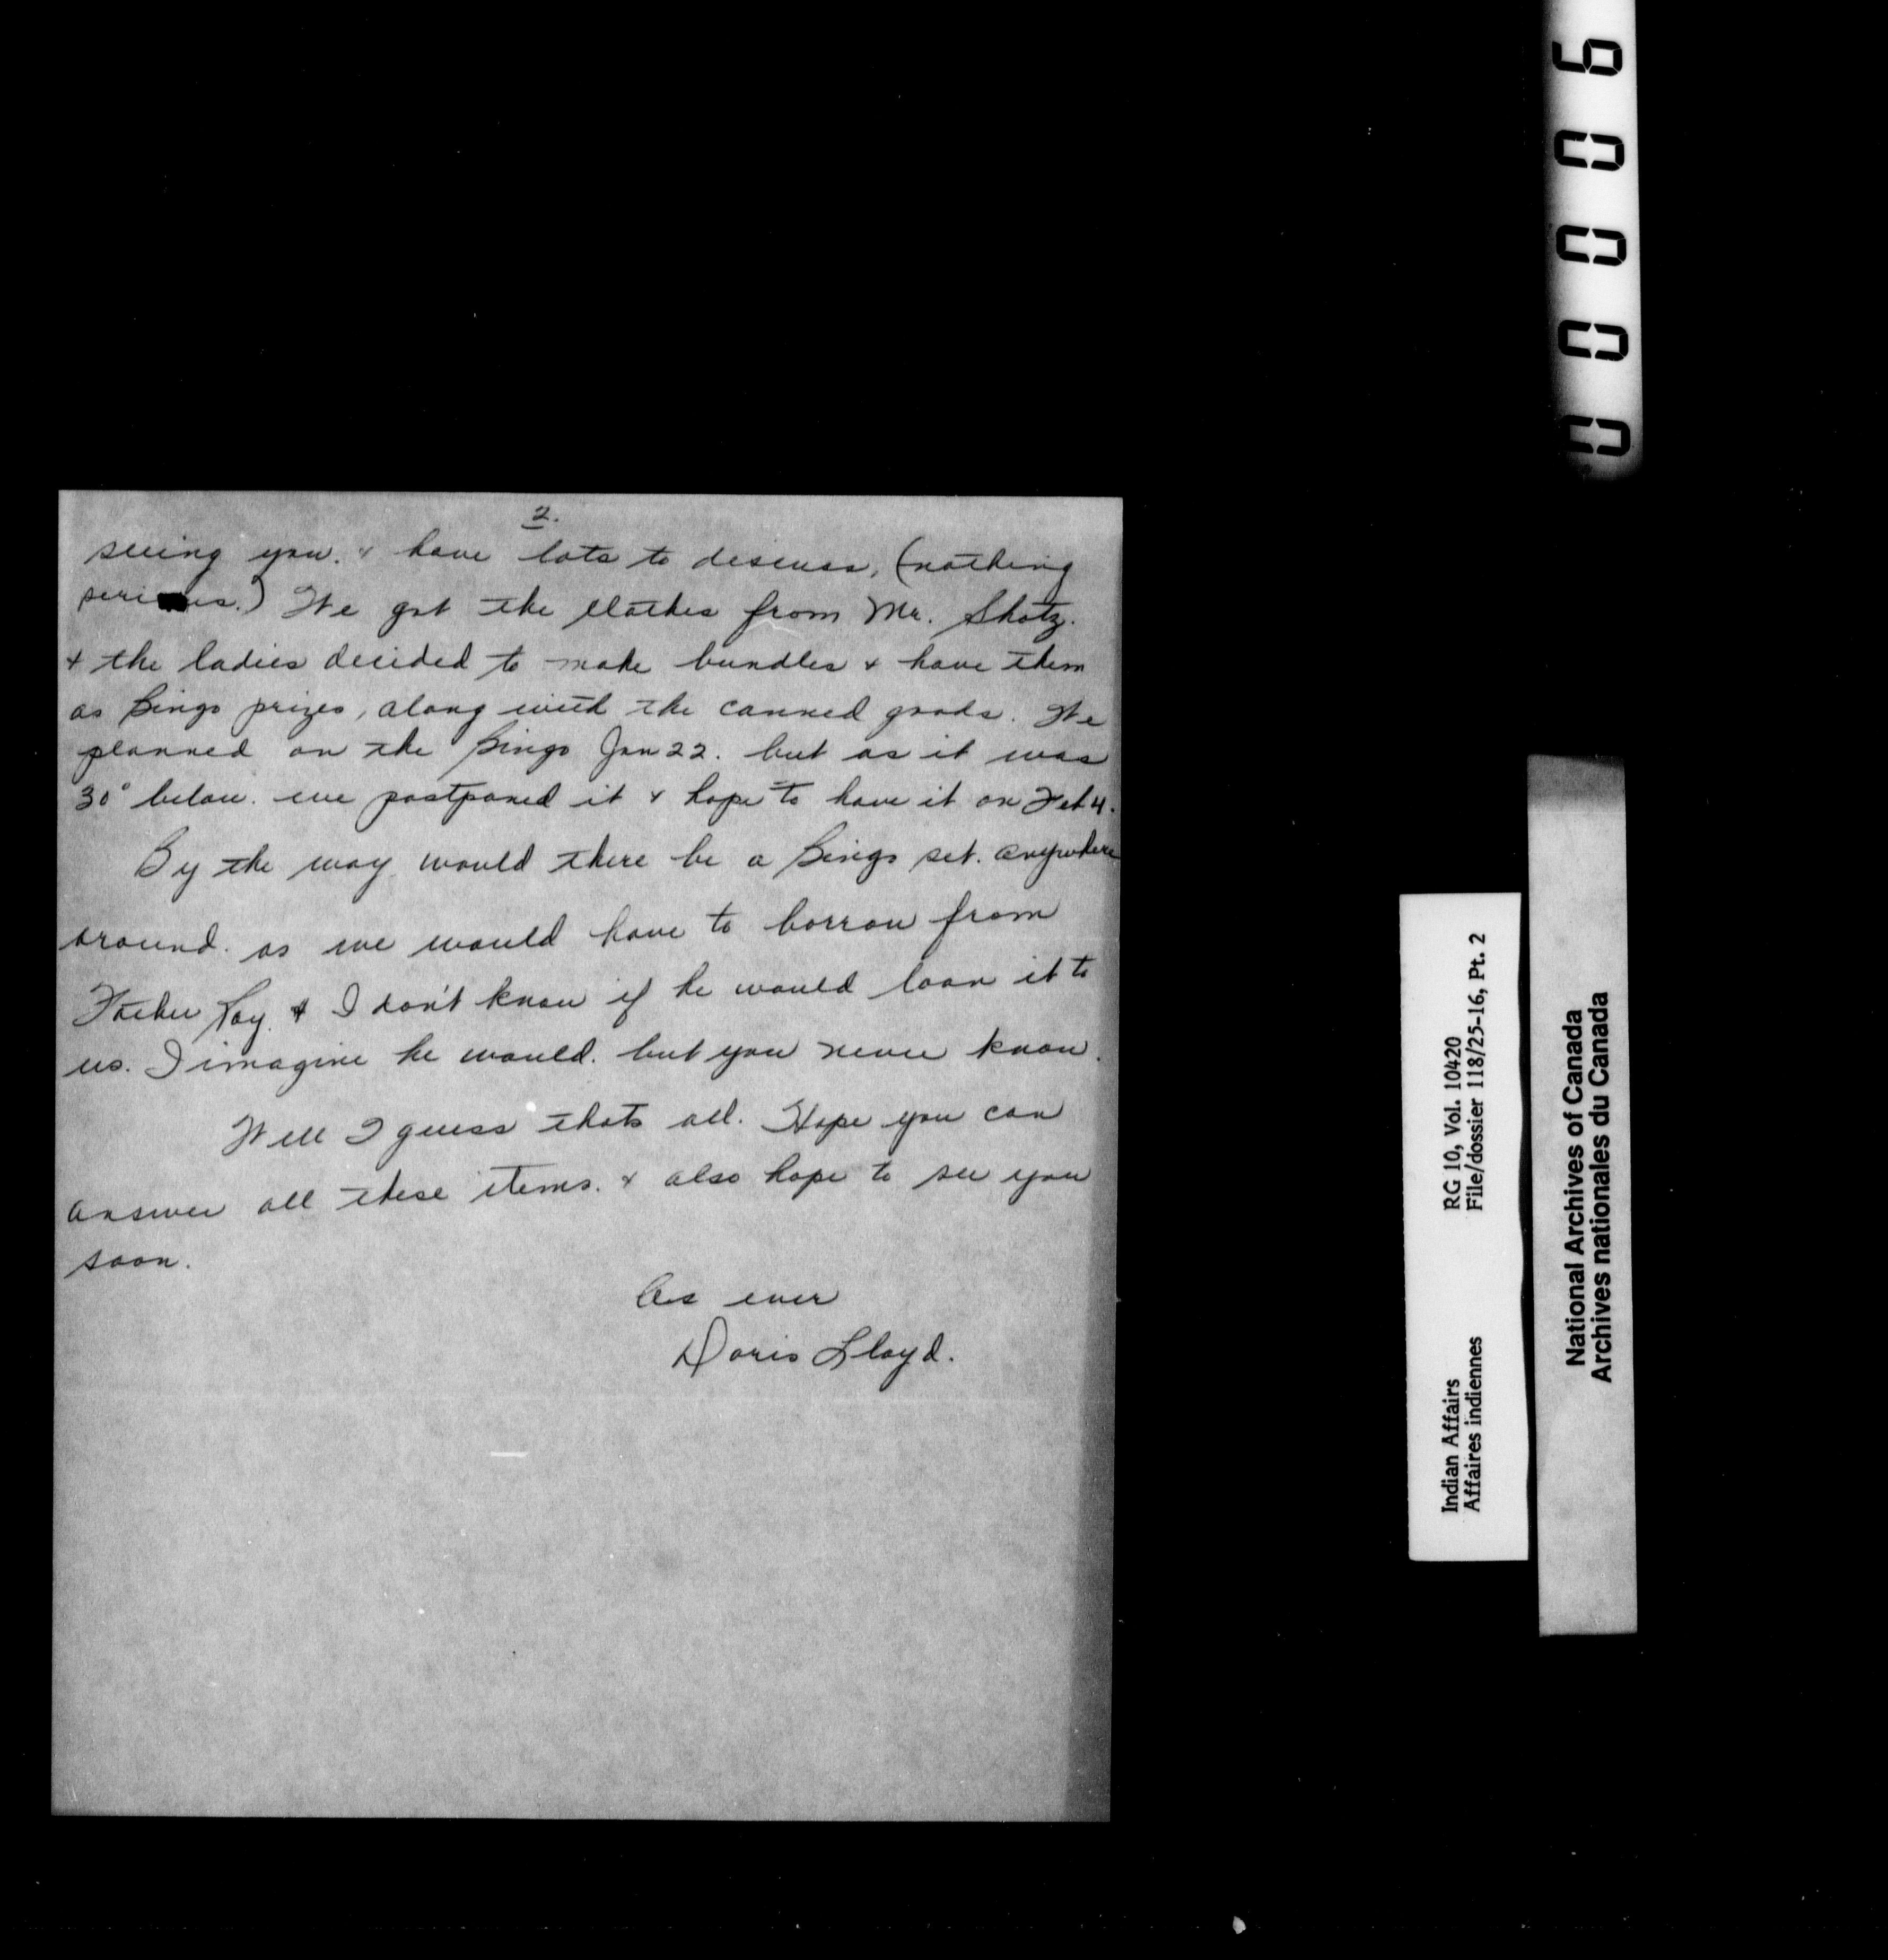 2.
seeing you. & have lots to discuss, (nothing
serious.) We got the clothes from Mr. Shotz.
& the ladies decided to make bundles & have them
as Bingo prizes, along with the canned goods. We
planned on the Bingo Jan 22. but as it was
30° below. we postponed it & hope to have it on Feb 4.
By the way would there be a Bingo set. anywhere
around. as we would have to borrow from
Father Roy. & I don't know if he would loan it to
us. I imagine he would. but you never know.
Well I guess thats all. Hope you can
answer all these items. & also hope to see you
soon.
As ever
Doris Lloyd.
00006
Indian Affairs RG 10, Vol. 10420
Affaires indiennes File/dossier 118/25-16, Pt. 2
National Archives of Canada
Archives nationales du Canada